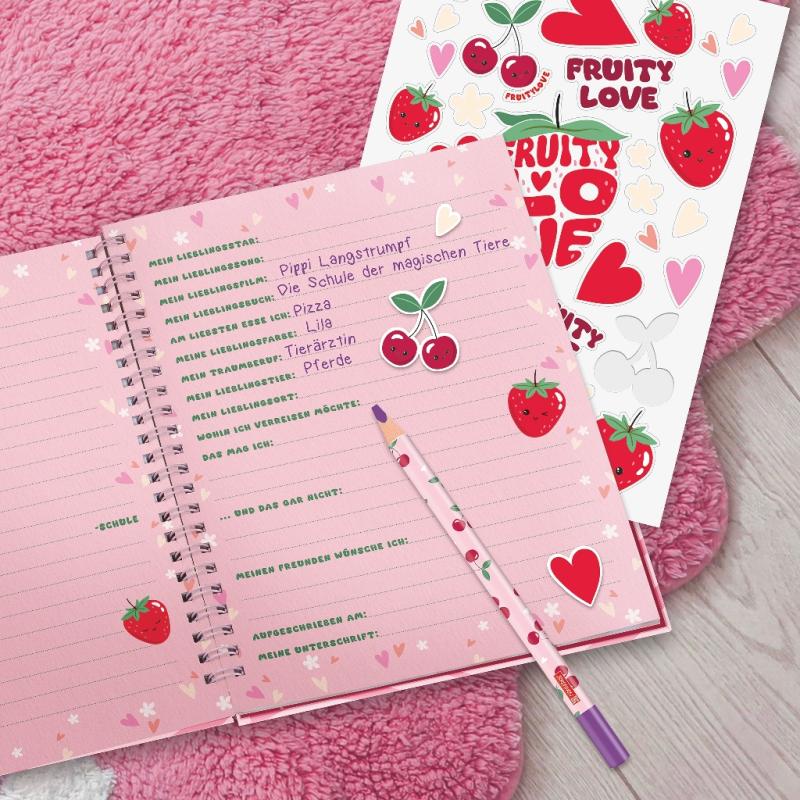 FRUITYLOVE
FRUITY
LOVE
FRUITY
LO
VE
MEIN LIEBLINGSSTAR:
MEIN LIEBLINGSSONG:
MEIN LIEBLINGSFILM: Pippi Langstrumpf
MEIN LIEBLINGSBUCH: Die Schule der magischen Tiere
AM LIEBSTEN ESSE ICH: Pizza
MEINE LIEBLINGSFARBE: Lila
MEIN TRAUMBERUF: Tierärztin
MEIN LIEBLINGSTIER: Pferde
MEIN LIEBLINGSORT:
WOHIN ICH VERREISEN MÖCHTE:
DAS MAG ICH:
... UND DAS GAR NICHT:
MEINEN FREUNDEN WÜNSCHE ICH:
AUFGESCHRIEBEN AM:
MEINE UNTERSCHRIFT:
-SCHULE